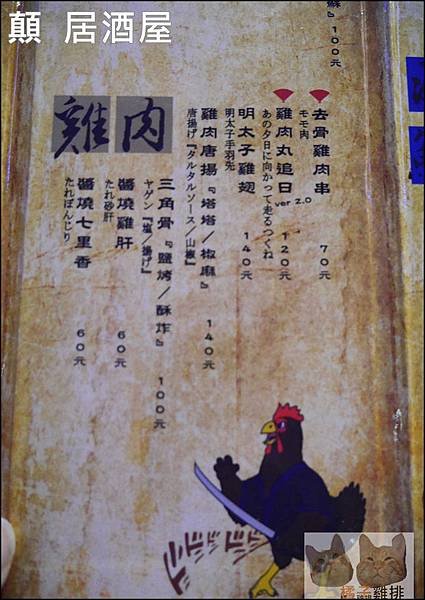 顛 居酒屋
蘇
100元
去骨雞肉串 70元
モモ肉
雞肉丸追日 ver 2.0 120元
あの夕日に向かって走るつくね
明太子雞翅 140元
明太子手羽先
雞肉唐揚『塔塔／椒麻』 140元
唐揚げ『タルタルソース／山椒』
雞肉
三角骨『鹽烤／酥炸』 100元
ヤゲン『塩／揚げ』
醬燒雞肝 60元
たれ砂肝
醬燒七里香 60元
たれぼんじり
橘子雞排